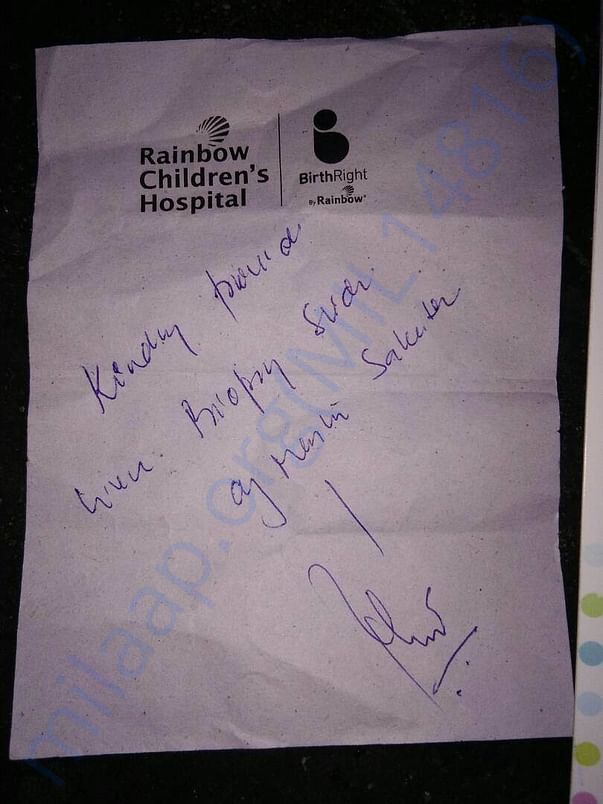 Rainbow
Children's
Hospital
BirthRight
By Rainbow®
Kindly provide
Liver Biopsy
of
milaap.org(MIL148816)